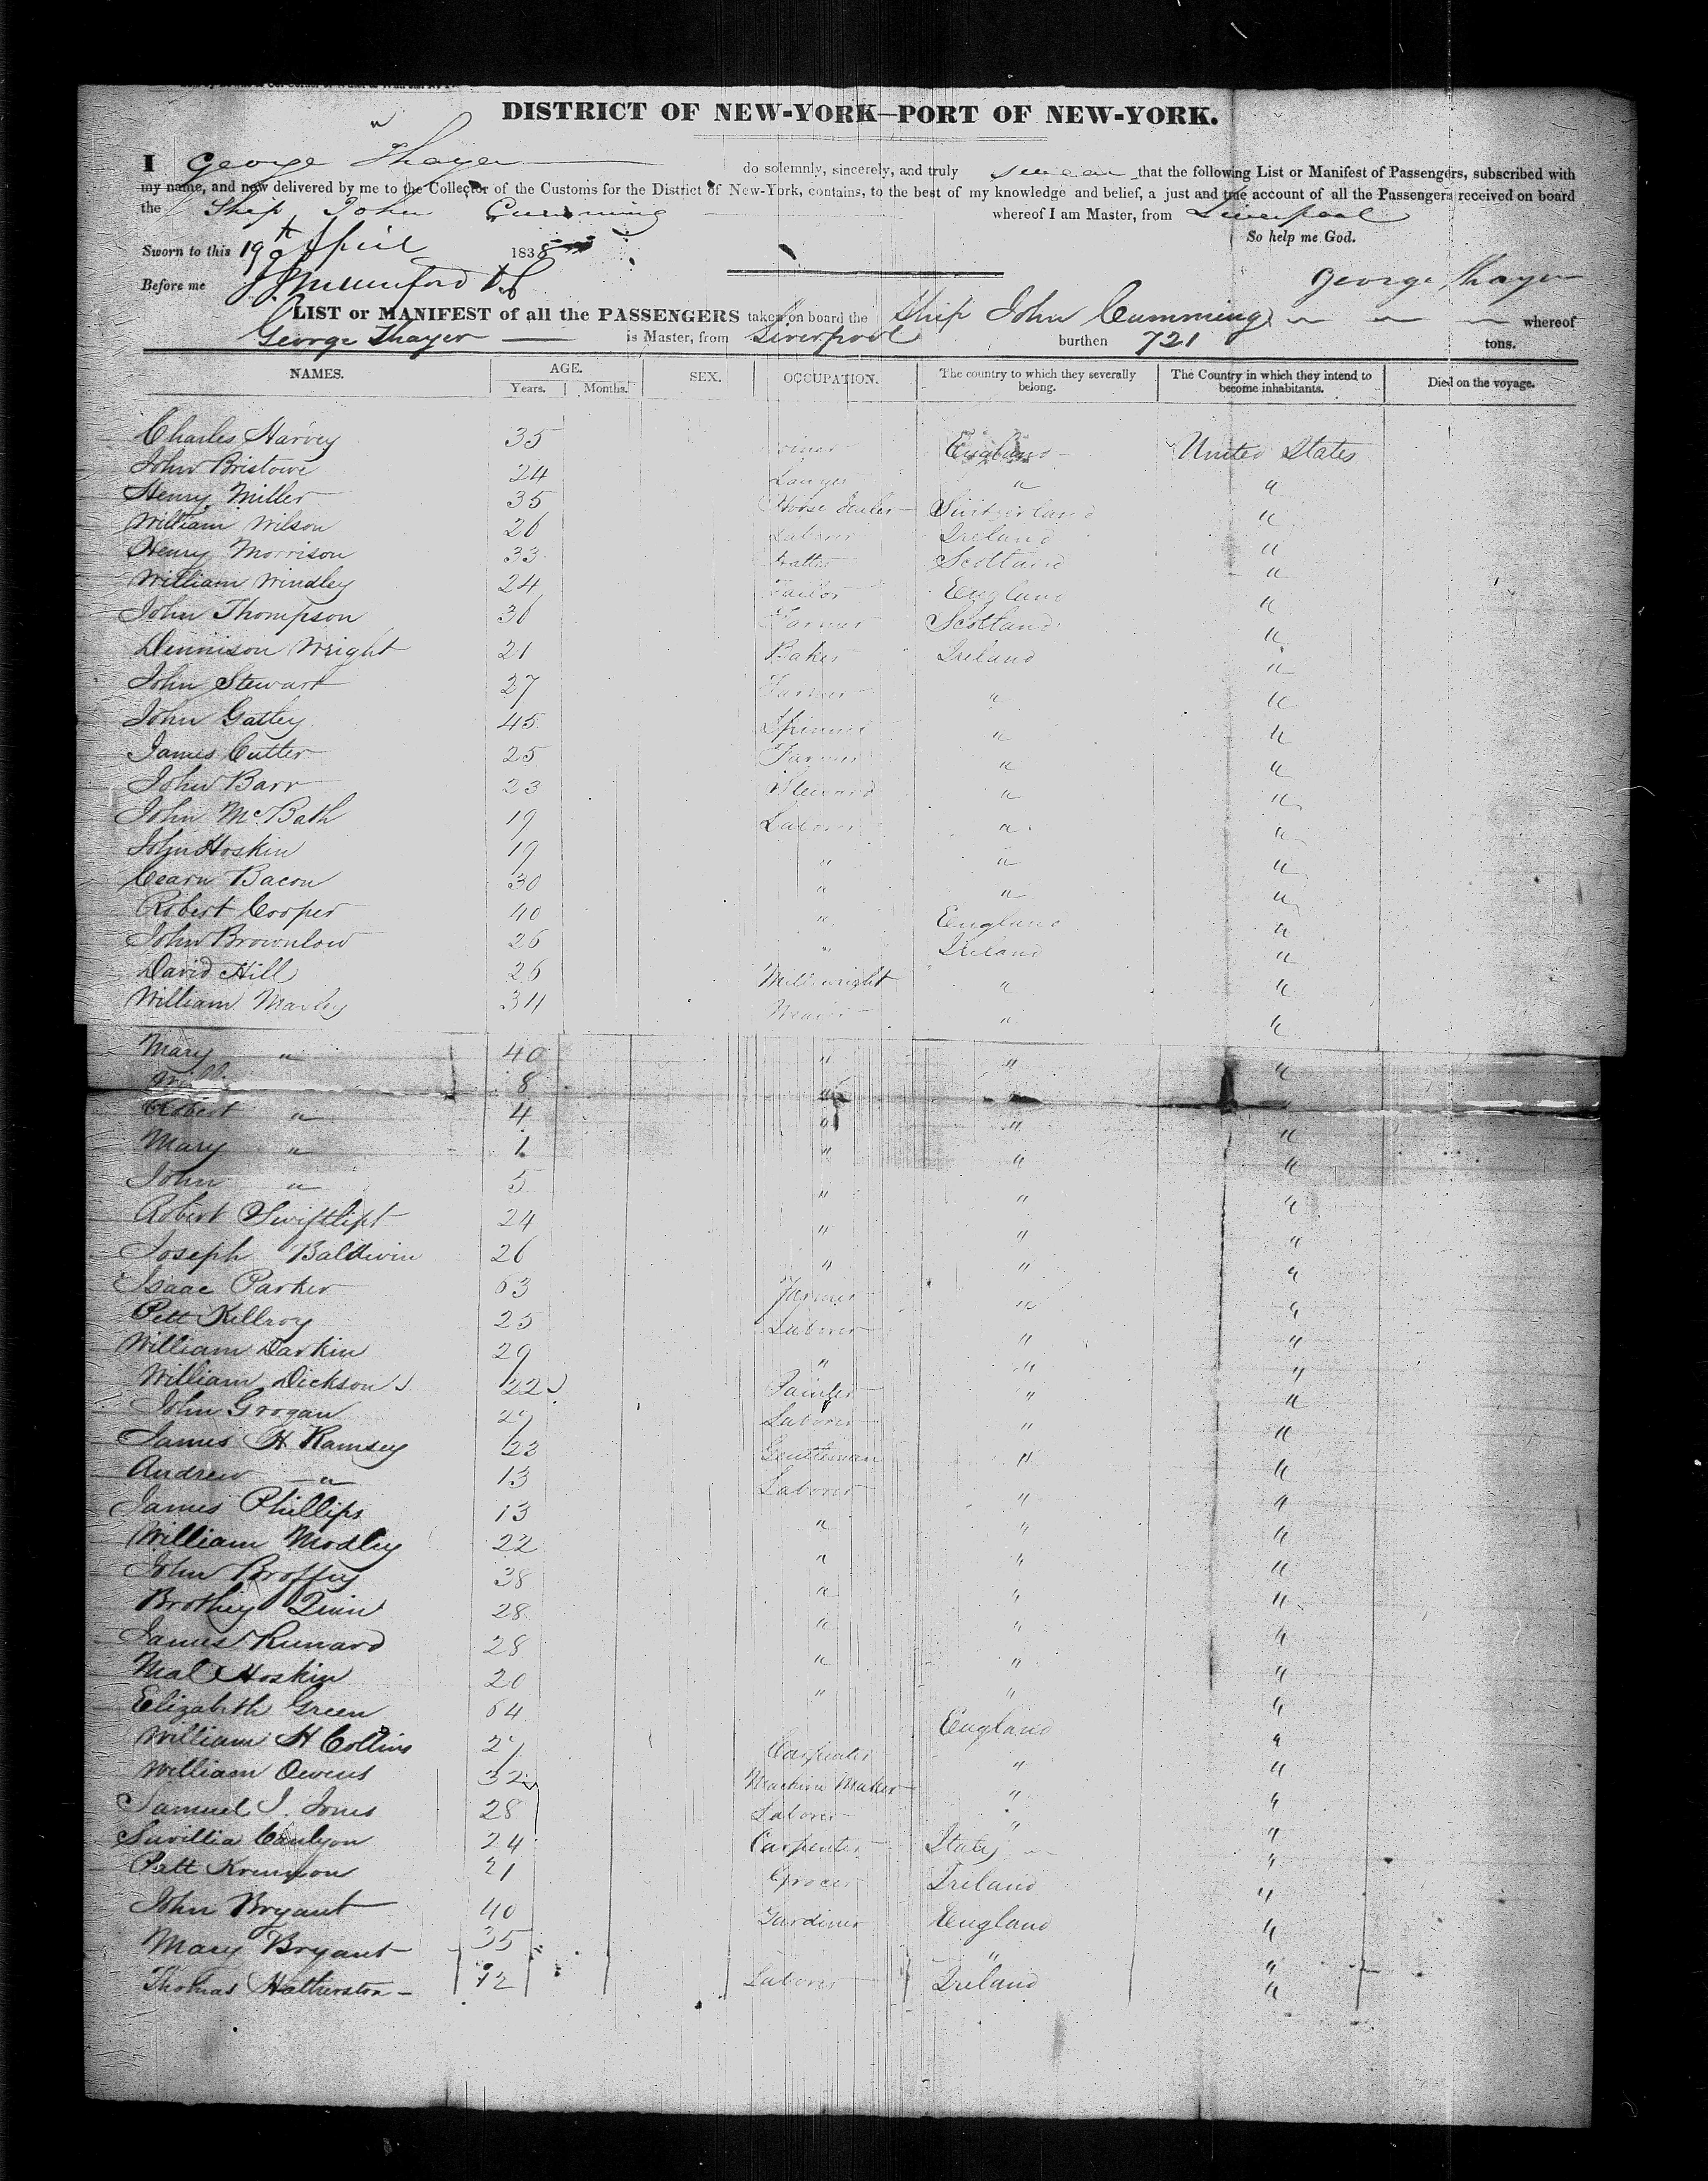 DISTRICT OF NEW-YORK—PORT OF NEW-YORK.
I George Thayer do solemnly, sincerely, and truly swear that the following List or Manifest of Passengers, subscribed with
my name, and now delivered by me to the Collector of the Customs for the District of New-York, contains, to the best of my knowledge and belief, a just and true account of all the Passengers received on board
the Ship John Cumming whereof I am Master, from Liverpool
So help me God.
Sworn to this 19th April 1838
Before me George Thayer
LIST or MANIFEST of all the PASSENGERS taken on board the Ship John Cumming whereof
George Thayer is Master, from Liverpool burthen 721 tons.
NAMES. AGE. Years. Months. SEX. OCCUPATION. The country to which they severally belong. The Country in which they intend to become inhabitants. Died on the voyage.
Charles Harvey 35 England United States
John Bristowe 24 " "
Henry Miller 35 Horse Dealer Switzerland "
William Wilson 26 Laborer Ireland "
Henry Morrison 33 Scotland "
William Windley 24 Tailor England "
John Thompson 36 Farmer Scotland "
Dennison Wright 21 Baker Ireland "
John Stewart 27 Farmer " "
John Gatley 45 Spinner " "
James Cutter 25 Farmer " "
John Barr 23 Steward " "
John McBath 19 Laborer " "
John Hoskin 19 " " "
Bacon 30 " " "
Robert Cooper 40 " England "
John Brownlow 26 " Ireland "
David Hill 26 Millwright " "
William 34 Weaver " "
Mary " 40 " " "
8 " " "
Robert " 4 " " "
Mary " 1 " " "
John " 5 " " "
Robert 24 " " "
Joseph Baldwin 26 " " "
Isaac Parker 63 Farmer " "
Patt Killroy 25 Laborer " "
William Darkin 29 " " "
William Dickson 22 Painter " "
John Grogan 27 Laborer " "
James H Ramsey 23 Gentleman " "
Andrew " 13 Laborer " "
James Phillips 13 " " "
William Modley 22 " " "
John 38 " " "
Quin 28 " " "
James 28 " " "
Mal Hoskin 20 " " "
Elizabeth Green 64 England "
William H Collins 27 Carpenter " "
William Owens 32 Machine Maker " "
Samuel J. Jones 28 Laborer " "
24 Carpenter Italy "
Patt 21 Grocer Ireland "
John Bryant 40 Gardiner England "
Mary Bryant 35 " "
Thomas 12 Laborer Ireland "